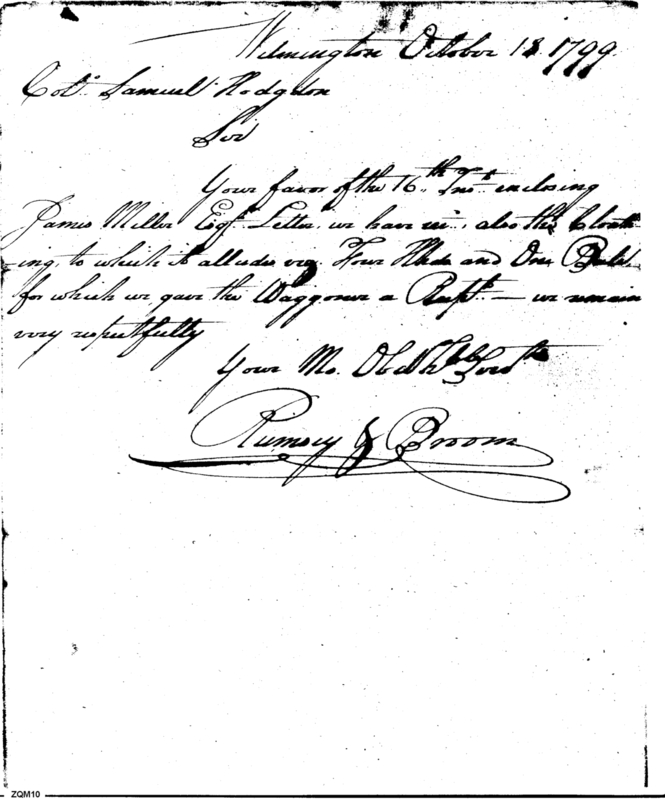 Wilmington October 18. 1799
Col.º Samuel Hodgdon
Sir
Your favor of the 16.th Ins.t enclosing
James Miller Esq.r Letter, we have rec.d, also the Cloath
ing, to which it alludes viz Four Hhds and One Bale
for which we gave the Waggoner a Recp.t — we remain
very respectfully
Your Mo. Obed.t H.ble Serv.ts
Rumsey & Broom
ZQM10